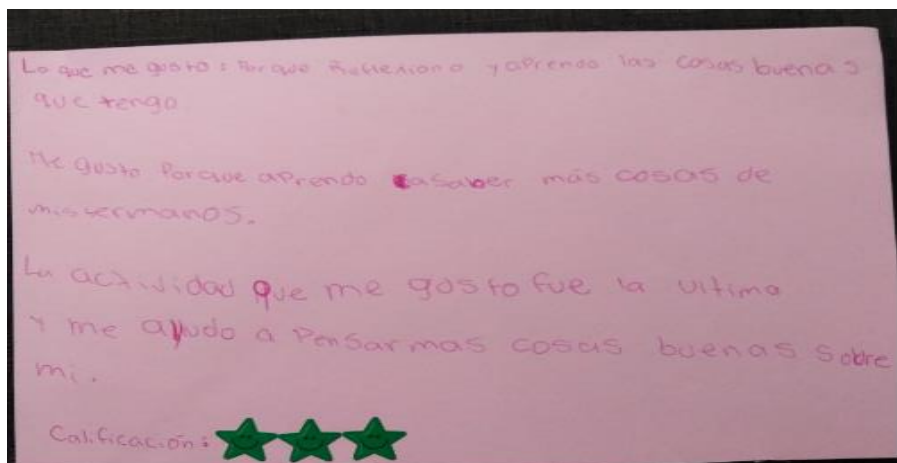 Lo que me gusto: Porque Reflexiono y aprendo las cosas buenas
que tengo
Me gusto Porque aprendo a saber más cosas de
mis ermanos.
La actividad que me gosto fue la ultima
Y me ayudo a Pensar mas cosas buenas sobre
mi.
Calificación: